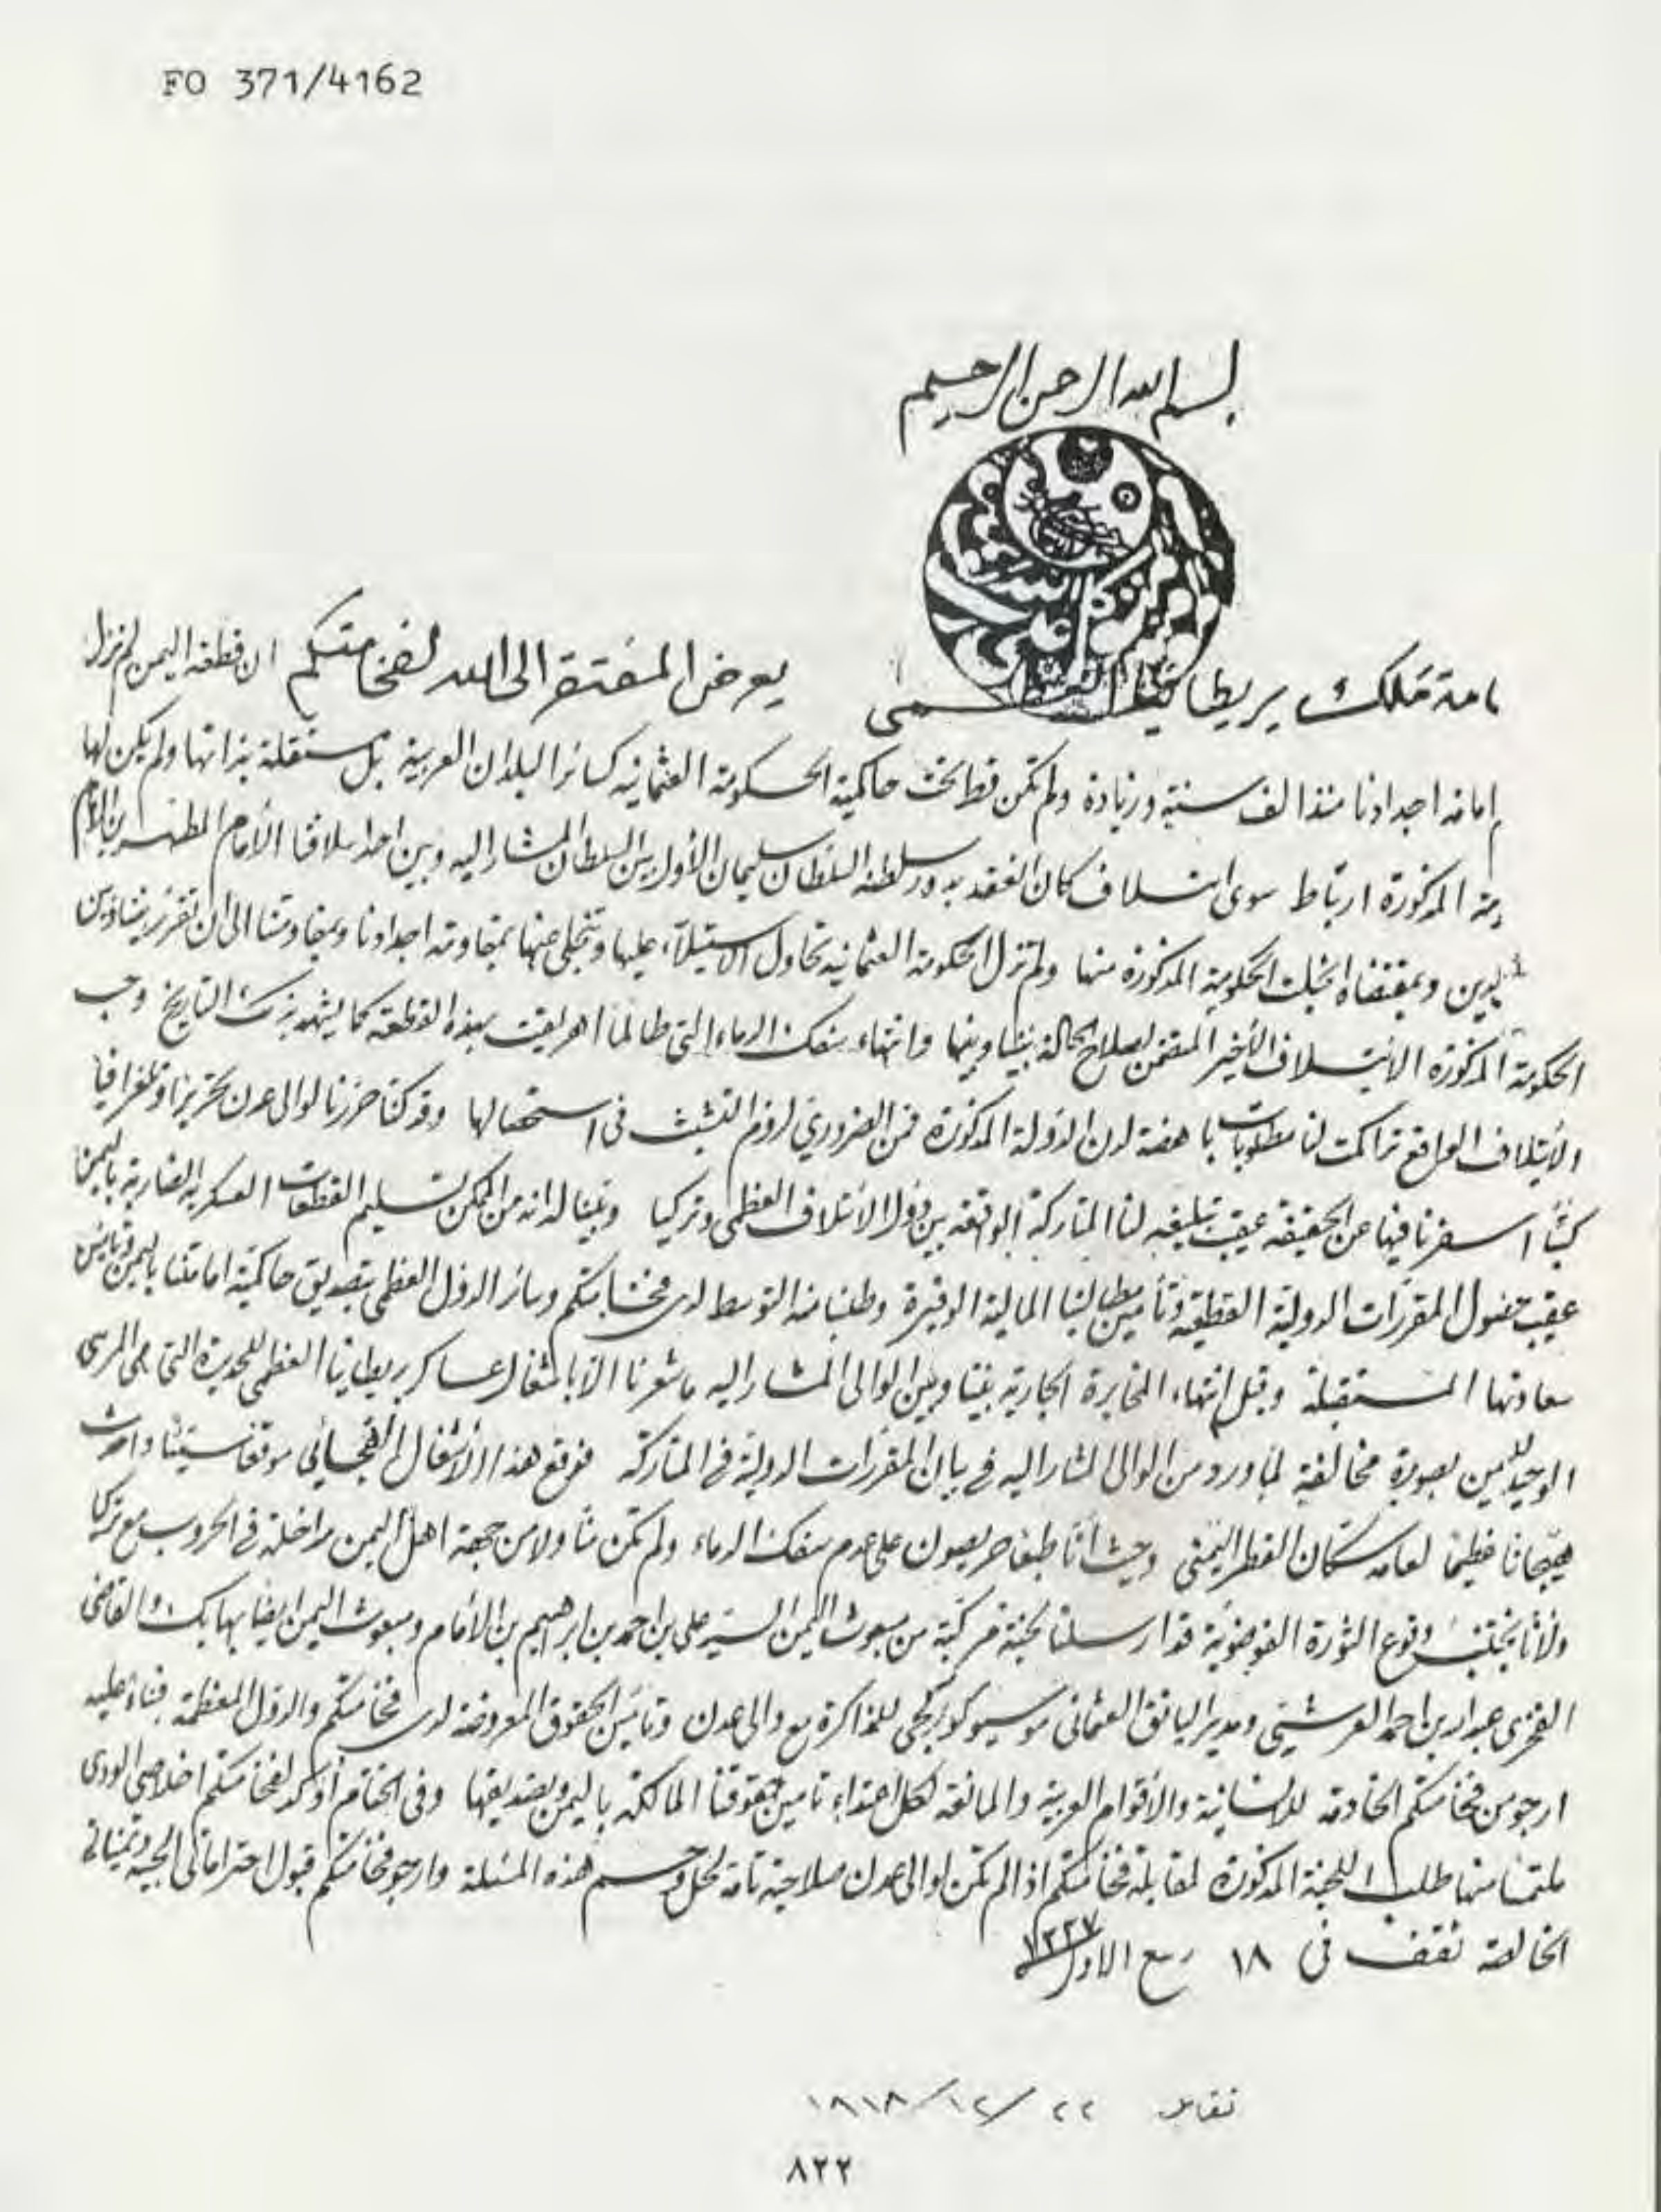 FO 371/4162
بسم الله الرحمن الرحيم
امة ملك بريطانيا العظمى يعرض المفتقر الى الله لفخامتكم ان قطعة اليمن لم تزل
امامة اجدادنا منذ الف سنة وزيادة ولم تكن قط تحت حاكمية الحكومة العثمانية كسائر البلدان العربية بل مستقلة بذاتها ولم يكن لها
المذكورة ارتباط سوى ائتلاف كان انعقد بدور سلطنة السلطان سليمان الأول بين السلطان المشار اليه وبين احد اسلافنا الأمام المطهر بن الأمام
الدين وبمقتضاه الحكومة المذكورة منها ولم تزل الحكومة العثمانية تحاول الاستيلاء عليها وتنجلى عنها بمقاومة اجدادنا وبمقاومتنا الى ان تقرر بيننا وبين
الحكومة المذكورة الائتلاف الأخير المتضمن اصلاح الحالة بيننا وبينها وانتهاء سفك الدماء التى طالما اهريقت بهذه القطعة كما يشهد بذلك التاريخ وحسب
الائتلاف الواقع تراكمت لنا مطلوبات باهضة لدن الدولة المذكورة فمن الضروري لزوم التشبث فى استحصالها وقد كنا حررنا لوالى عدن تحريرا وتلغرافيا
كتبًا اسفرنا فيها عن الحقيقة عقيب تبليغه لنا المتاركة الواقعة بين دول الائتلاف العظمى وتركيا وبينا له انه من الممكن تسليم القطعات العسكرية باليمن
عقيب حصول المقررات الدولية القطعية وتأمين مطالبنا المالية الوفيرة وطلبنا منه التوسط لدى فخامتكم وسائر الدول العظمى بتصديق حاكمية امامتنا باليمن وتأسيس
سعادتها المستقبلة وقبل انتهاء المخابرة الجارية بيننا وبين الوالى المشار اليه ما شعرنا الا باشغال عساكر بريطانيا العظمى للحديدة التى هى المرسى
الوحيد لليمن بصورة مخالفة لما ورد من الوالى المشار اليه في بيان المقررات الدولية في المتاركة فوقع هذا الأشغال الفجائي موقعا سيئا واحدث
هيجانا عظيما لعامة سكان القطر اليمنى وحيث انا طبعا حريصون على عدم سفك الدماء ولم تكن منا ولا من جهة اهل اليمن مداخلة في الحروب مع تركيا
ولأنا نجتنب وقوع الثورة الفوضوية قد ارسلنا لجنة مركبة من مبعوث اليمن السيد على بن احمد بن ابراهيم بن الأمام ومبعوث اليمن ايضا بهابك والقاضى
الفخرى عبدالله بن احمد العرشي ومدير البانق العثمانى موسيو للمذاكرة مع والى عدن وتأمين الحقوق المعروضة لدى فخامتكم والدول المعظمة فبناء عليه
ارجو من فخامتكم الخادمة للانسانية والاقوام العربية والمانعة لكل اعتداء تأمين حقوقنا المالكة باليمن وبتصديقها وفى الختام أؤكد لفخامتكم اخلاصى الودى
ملتمسا منها طلب اللجنة المذكورة لمقابلة فخامتكم اذا لم تكن لوالى عدن صلاحية تامة لحل وحسم هذه المسئلة وارجو فخامتكم قبول احتراماتى الحبية وتمنياتى
الخالصة فى ١٨ ربيع الاول ١٣٣٧
٢٢/١٢/١٩١٨
٨٢٢